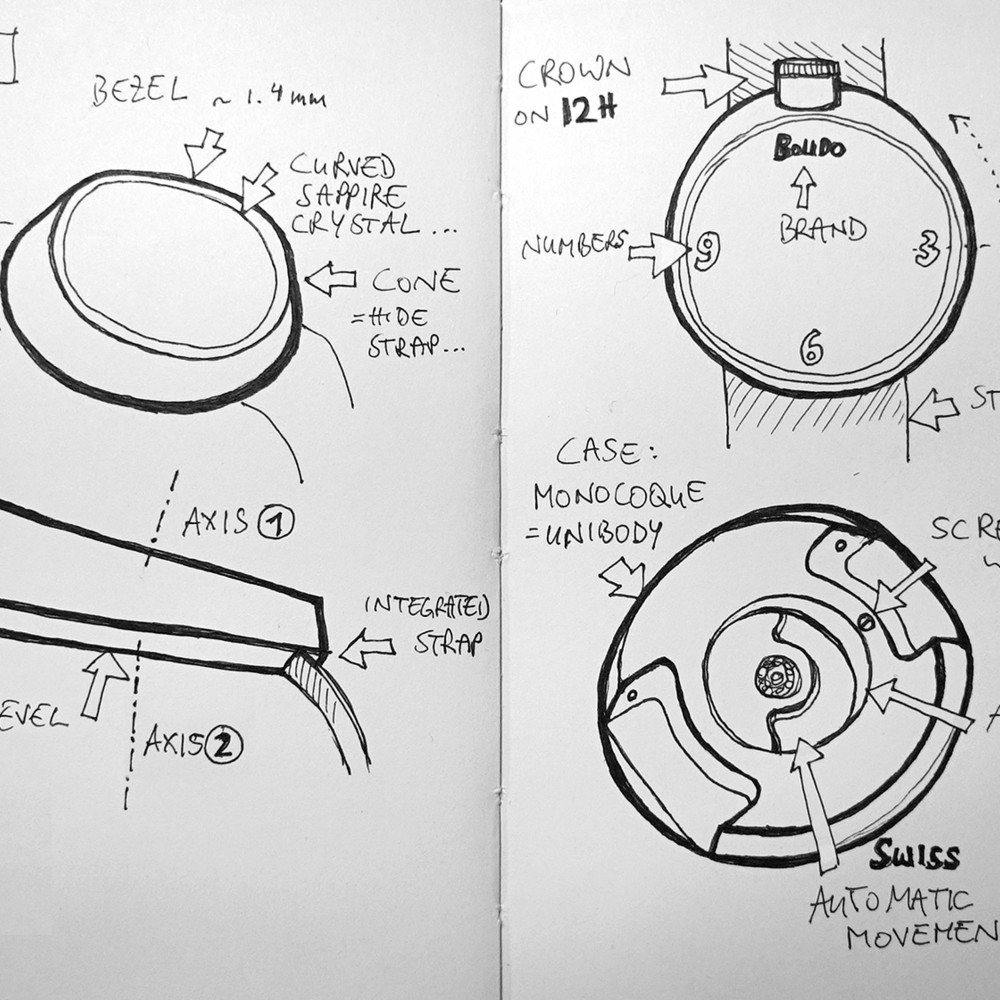 BEZEL ~ 1.4mm
CURVED
SAPPIRE
CRYSTAL ...
CONE
=HIDE
STRAP...
AXIS 1
INTEGRATED
STRAP
EVEL
AXIS 2
CROWN
ON 12H
BOLIDO
BRAND
NUMBERS
9
3
6
ST
CASE:
MONOCOQUE
=UNIBODY
SCRE
W
A
SWISS
AUTOMATIC
MOVEMEN